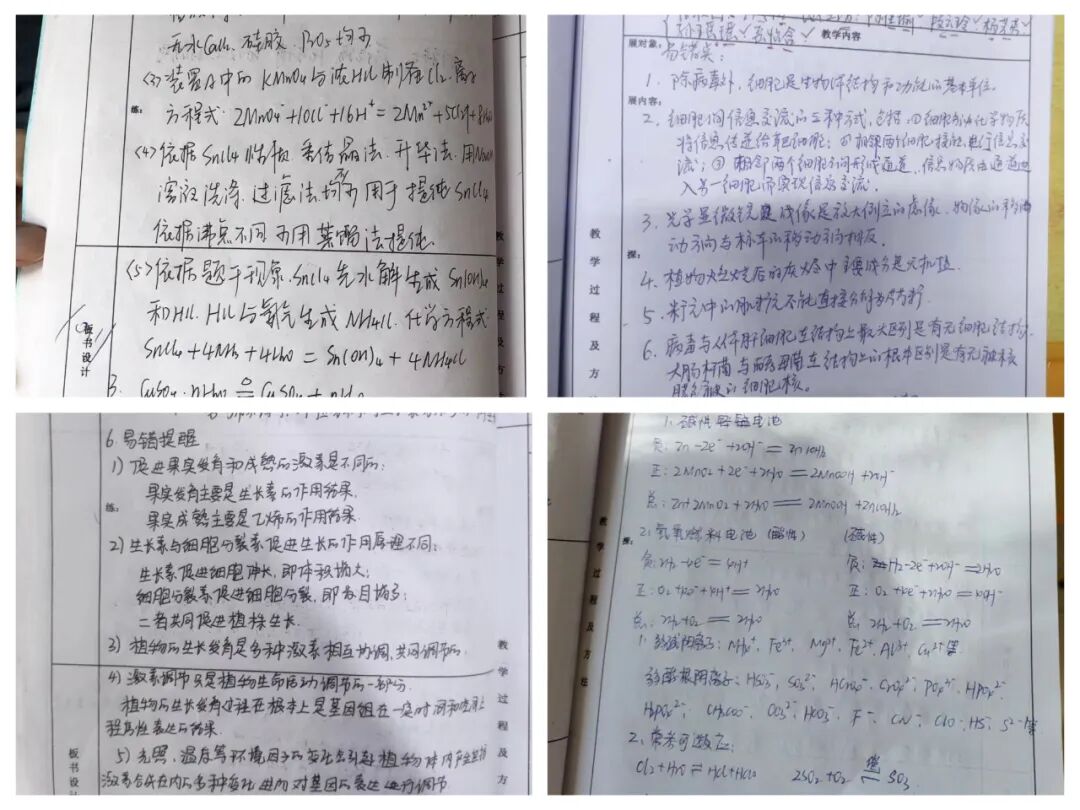 无水CaCl₂、硅胶、P₂O₅均可
(3)装置A中的KMnO₄与浓HCl制备Cl₂.离子
练:
方程式:2MnO₄⁻+10Cl⁻+16H⁺=2Mn²⁺+5Cl₂↑+8H₂O
(4)依据SnCl₄性质,重结晶法、升华法、用NaOH
溶液洗涤、过滤法均不可用于提纯SnCl₄
依据沸点不同可用蒸馏法提纯.
(5)依据题干现象,SnCl₄先水解生成Sn(OH)₄
和HCl.HCl与氨气生成NH₄Cl.化学方程式:
SnCl₄+4NH₃+4H₂O=Sn(OH)₄+4NH₄Cl
板书设计
教学
教学内容
展对象:
易错类:
1. 除病毒外,细胞是生物体结构和功能的基本单位.
展内容:
2. 细胞间信息交流的三种方式,包括:①细胞分泌化学物质
将信息传递给靶细胞;②相邻两个细胞接触,进行信息交
流;③相邻两个细胞之间形成通道,信息物质由通道进
入另一细胞而实现信息交流.
3. 光学显微镜成像是放大倒立的虚像,物像的移
动方向与标本的移动方向相反.
探:
4. 植物燃烧后的灰烬中主要成分是无机盐.
6. 病毒与人体肝细胞在结构上最大区别是有无细胞结构.
大肠杆菌与酵母菌在结构上的根本区别是有无被核
膜包被的细胞核.
教学过程及方
6. 易错提醒
1) 促进果实发育和成熟的激素是不同的:
果实发育主要是生长素的作用结果.
练:
果实成熟主要是乙烯的作用结果
2) 生长素与细胞分裂素促进生长的作用原理不同:
生长素促进细胞伸长,即体积增大;
细胞分裂素促进细胞分裂,即数目增多;
二者共同促进植株生长.
3) 植物的生长发育是多种激素相互协调、共同调节的.
4) 激素调节只是植物生命活动调节的一部分
植物的生长发育过程在根本上是基因组在一定时间和空间上
程序性表达的结果.
5) 光照、温度等环境因子的变化会引起植物体内产生包括
激素合成在内的多种变化进而对基因的表达进行调节
板书设
教学过程及方
1. 碱性锌锰电池
负: Zn-2e⁻+2OH⁻=Zn(OH)₂
正: 2MnO₂+2e⁻+2H₂O=2MnOOH+2OH⁻
总: Zn+2MnO₂+2H₂O=2MnOOH+Zn(OH)₂
探:
2. 氢氧燃料电池 (酸性) (碱性)
负: 2H₂-4e⁻=4H⁺
正: O₂+4e⁻+4H⁺=2H₂O 正: O₂+4e⁻+2H₂O=4OH⁻
总: 2H₂+O₂=2H₂O 总: 2H₂+O₂=2H₂O
1. 弱碱阳离子: NH₄⁺、Fe³⁺、Mg²⁺、Fe²⁺、Al³⁺、Cu²⁺等
2. 常考可逆反应:
Cl₂+H₂O⇌HCl+HClO
教学过程及方法